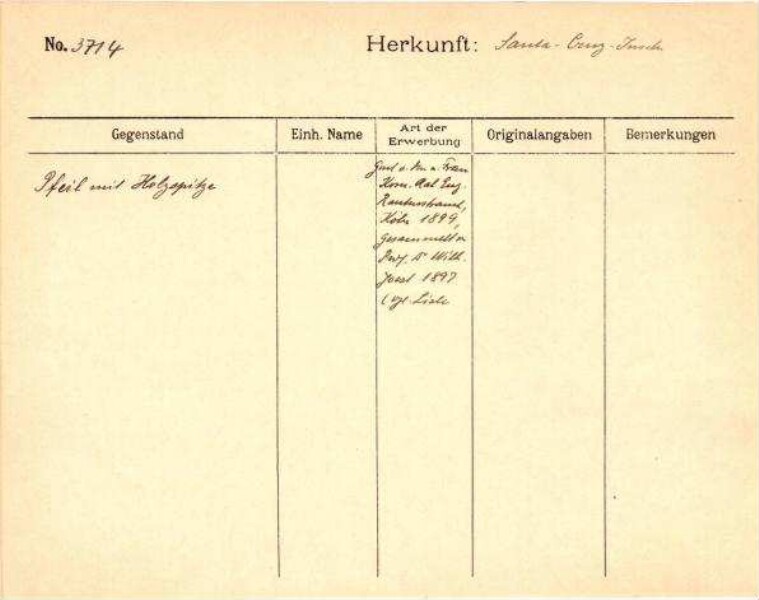 No. 3714
Herkunft: Santa-Cruz-Inseln
Gegenstand
Einh. Name
Art der
Erwerbung
Originalangaben
Bemerkungen
Pfeil mit Holzspitze
Kom. Rat Eug.
Rautenstrauch,
Köln 1899,
gesammelt v.
Prof. Dr Wilh.
Joest 1897
Liste